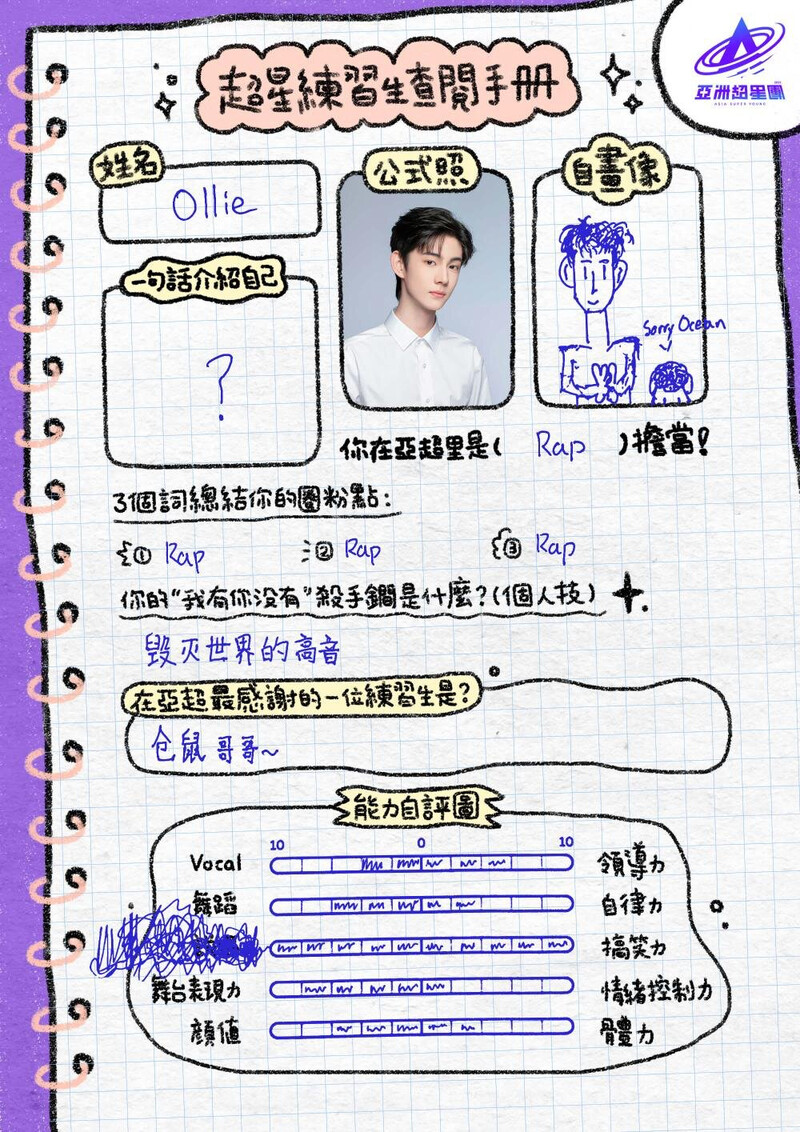 亞洲超星團
ASIA SUPER YOUNG
超星練習生查閱手册
姓名
Ollie
公式照
自畫像
一句話介紹自己
?
Sorry Ocean
你在亞超里是( Rap )擔當!
3個詞總結你的圈粉點:
① Rap ② Rap ③ Rap
你的"我有你没有"殺手鐧是什麼?(個人技)
毁灭世界的高音
在亞超最感謝的一位練習生是?
仓鼠哥哥~
能力自評圖
10 0 10
Vocal 領導力
舞蹈 自律力
搞笑力
舞台表現力 情緒控制力
顏值 體力